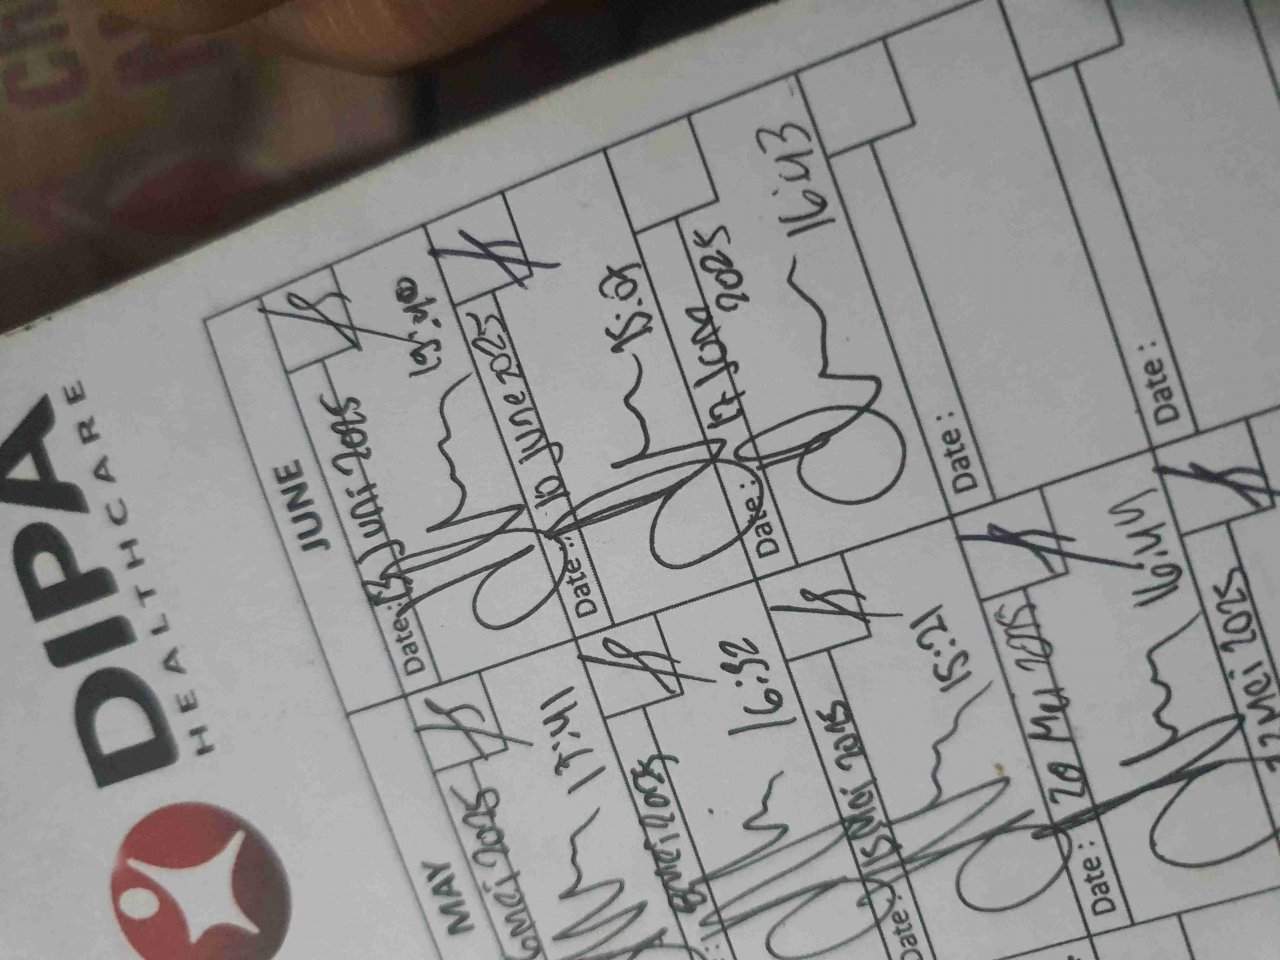 DIPA
HEALTHCARE
MAY
6 Mei 2025
17:41
8 Mei 2025
16:52
Date: 15 Mei 2025
15:21
Date: 20 Mei 2025
16:44
22 Mei 2025
JUNE
Date: 13 Juni 2025
15:40
Date: 16 June 2025
15:07
Date: 17 June 2025
16:43
Date:
Date: